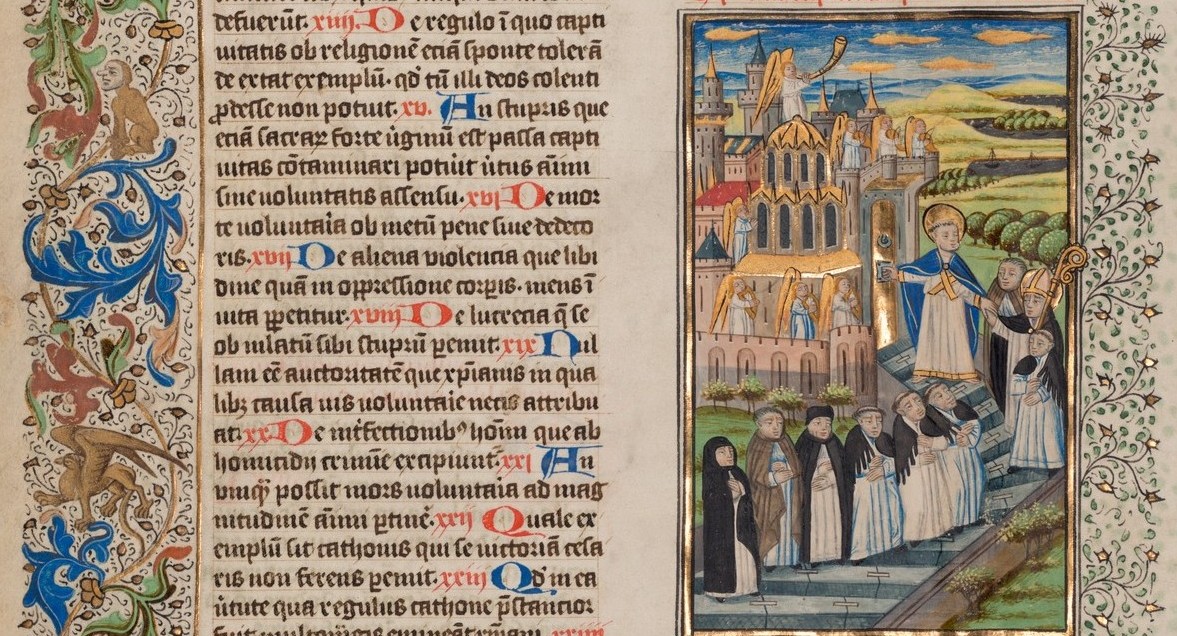 defuerūt. xiiij. De regulo ī quo capti
uitatis ob religionē eciā sponte tolerā
de extat exemplū. qd̓ tn̄ illi deos colenti
ꝓdesse non potuit. xv. An stupris que
eciā sacraꝝ forte ūginū est passa capti
uitas cōtaminari potuit ūtus aīmi
sine uoluntatis assensu. xvj De mor
te uoluntaīa ob metū pene siue dedeco
ris. xvij De aliena uiolencia que libi
dine quā in oppressione corpīs. mens ī
uita ꝑpetitur. xviij De lucrecia q̄ se
ob illatū sibi stuprū ꝑemit. xix Nul
lam eē auctoritatē que xp̄ianis in qua
libꝫ causa ius uoluntaīe necis attribu
at. xx De int̄fectionibꝰ hoīm que ab
homicidij crimine excipiunt᷑. xxi An
vmqꝫ possit mors uoluntaīa ad mag
nitudinē aīmi ꝑtinē. xxij Quale ex
emplū sit cathonis qui se uictoriā cesa
ris non ferens ꝑemit xxiij Qd̓ in ea
ūtute qua regulus cathone p̄stancior